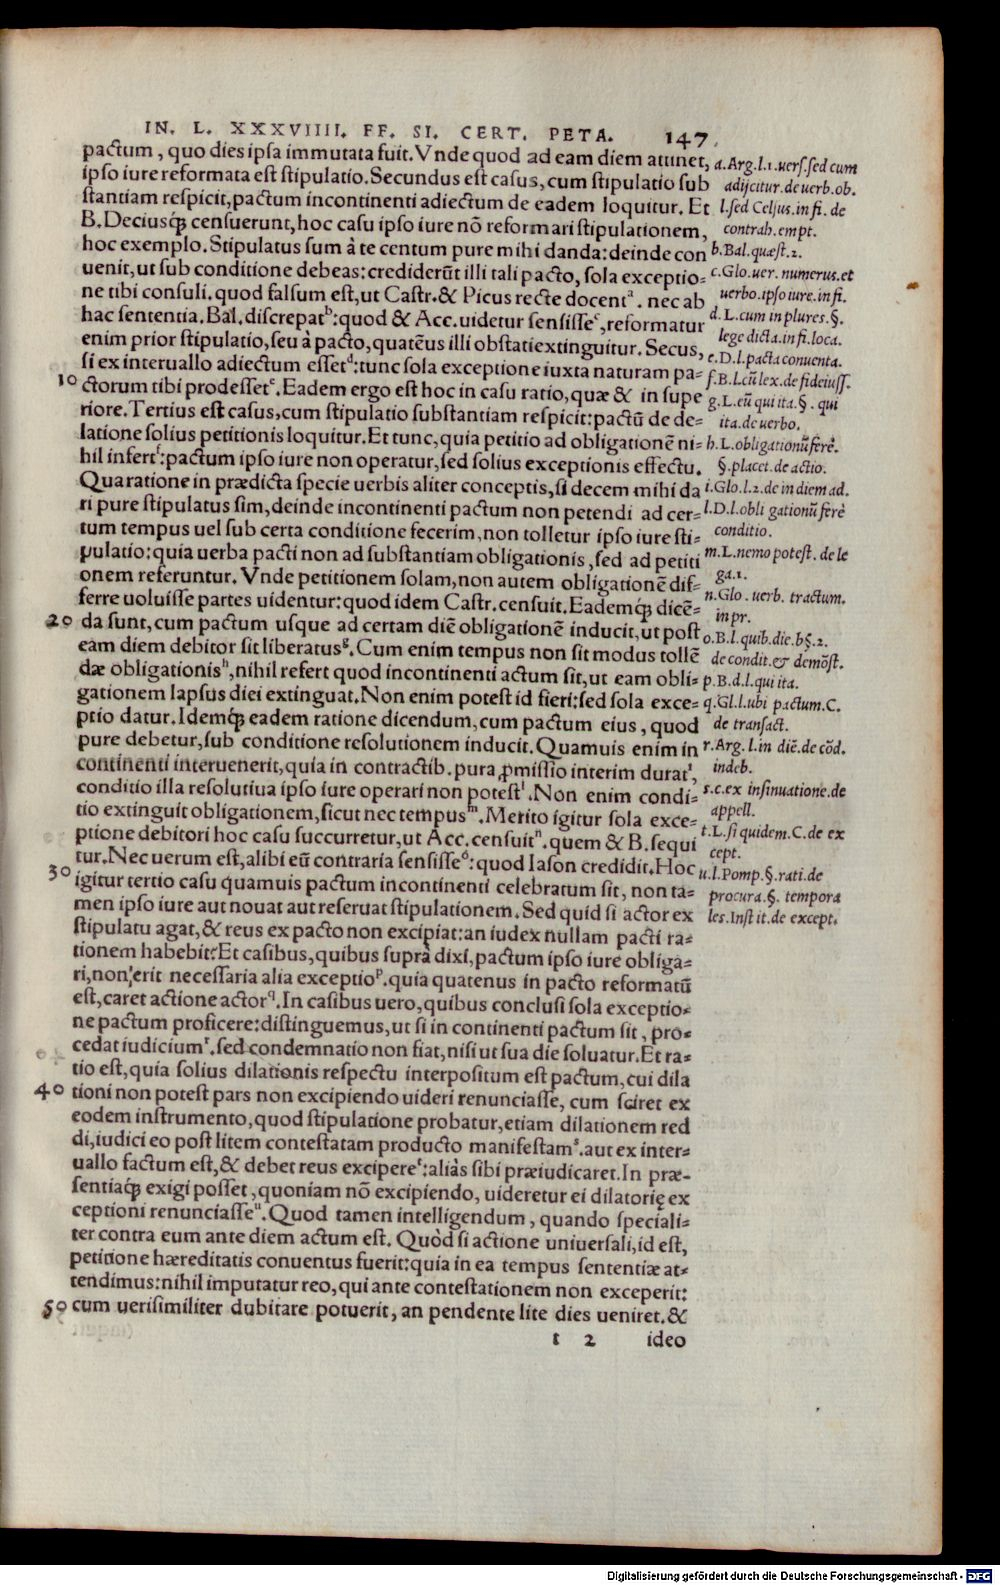 IN. L. XXXVIIII. FF. SI. CERT. PETA. 147
pactum, quo dies ipsa immutata fuit. Vnde quod ad eam diem attinet,
ipso iure reformata est stipulatio. Secundus est casus, cum stipulatio sub
stantiam respicit, pactum incontinenti adiectum de eadem loquitur. Et
B. Deciusq́; censuerunt, hoc casu ipso iure nō reformari stipulationem,
hoc exemplo. Stipulatus sum à te centum pure mihi danda: deinde con
uenit, ut sub conditione debeas: crediderūt illi tali pacto, sola exceptio=
ne tibi consuli. quod falsum est, ut Castr. & Picus recte docentᵃ. nec ab
hac sententia. Bal. discrepatᵇ: quod & Acc. uidetur sensisseᶜ, reformatur
enim prior stipulatio, seu à pacto, quatēus illi obstat extinguitur. Secus,
si ex interuallo adiectum essetᵈ: tunc sola exceptione iuxta naturam pa=
10 ctorum tibi prodessetᵉ. Eadem ergo est hoc in casu ratio, quæ & in supe
riore. Tertius est casus, cum stipulatio substantiam respicit: pactū de de=
latione solius petitionis loquitur. Et tunc, quia petitio ad obligationē ni=
hil infertᶠ: pactum ipso iure non operatur, sed solius exceptionis effectu.
Qua ratione in prædicta specie uerbis aliter conceptis, si decem mihi da
ri pure stipulatus sim, deinde incontinenti pactum non petendi ad cer=
tum tempus uel sub certa conditione fecerim, non tolletur ipso iure sti=
pulatio: quia uerba pacti non ad substantiam obligationis, sed ad petiti
onem referuntur. Vnde petitionem solam, non autem obligationē dif=
ferre uoluisse partes uidentur: quod idem Castr. censuit. Eademq́; dicē=
20 da sunt, cum pactum usque ad certam diē obligationē inducit, ut post
eam diem debitor sit liberatusᵍ. Cum enim tempus non sit modus tollē
dæ obligationisʰ, nihil refert quod incontinenti actum sit, ut eam obli=
gationem lapsus diei extinguat. Non enim potest id fieri: sed sola exce=
ptio datur. Idemq́; eadem ratione dicendum, cum pactum eius, quod
pure debetur, sub conditione resolutionem inducit. Quamuis enim in
continenti interuenerit, quia in contractib. pura ꝓmissio interim duratⁱ,
conditio illa resolutiua ipso iure operari non potestˡ. Non enim condi=
tio extinguit obligationem, sicut nec tempusᵐ. Merito igitur sola exce=
ptione debitori hoc casu succurretur, ut Acc. censuitⁿ. quem & B. sequi
tur. Nec uerum est, alibi eū contraria sensisseᵒ: quod Iason credidit. Hoc
30 igitur tertio casu quamuis pactum incontinenti celebratum sit, non ta=
men ipso iure aut nouat aut reseruat stipulationem. Sed quid si actor ex
stipulatu agat, & reus ex pacto non excipiat: an iudex nullam pacti ra=
tionem habebit? Et casibus, quibus suprà dixi, pactum ipso iure obliga=
ri, non erit necessaria alia exceptioᵖ. quia quatenus in pacto reformatū
est, caret actione actor𐞥. In casibus uero, quibus conclusi sola exceptio=
ne pactum proficere: distinguemus, ut si in continenti pactum sit, pro=
cedat iudiciumʳ. sed condemnatio non fiat, nisi ut sua die soluatur. Et ra=
tio est, quia solius dilationis respectu interpositum est pactum, cui dila
40 tioni non potest pars non excipiendo uideri renunciasse, cum sciret ex
eodem instrumento, quod stipulatione probatur, etiam dilationem red
di, iudici eo post litem contestatam producto manifestamˢ. aut ex inter=
uallo factum est, & debet reus excipereᵗ: aliàs sibi præiudicaret. In præ=
sentiaq́; exigi posset, quoniam nō excipiendo, uideretur ei dilatorię ex
ceptioni renunciasseᵘ. Quod tamen intelligendum, quando speciali=
ter contra eum ante diem actum est. Quòd si actione uniuersali, id est,
petitione hæreditatis conuentus fuerit: quia in ea tempus sententiæ at=
tendimus: nihil imputatur reo, qui ante contestationem non exceperit:
50 cum uerisimiliter dubitare potuerit, an pendente lite dies ueniret. &
t 2 ideo
a. Arg. l. 1. uers. sed cum
adijcitur. de uerb. ob.
l. sed Celsus. in fi. de
contrah. empt.
b. Bal. quæst. 2.
c. Glo. uer. numerus. et
uerbo. ipso iure. in fi.
d. L. cum in plures. §.
lege dicta. in fi. loca.
e. D. l. pacta conuenta.
f. B. l. cū lex. de fideiuss.
g. L. eū qui ita. §. qui
ita. de uerbo.
h. L. obligationū ferè.
§. placet. de actio.
i. Glo. l. 2. de in diem ad.
l. D. l. obli gationū ferè
conditio.
m. L. nemo potest. de le
ga. 1.
n. Glo. uerb. tractum.
in pr.
o. B. l. quib. die. b §. 2.
de condit. & demōst.
p. B. d. l. qui ita.
q. Gl. l. ubi pactum. C.
de transact.
r. Arg. l. in diē. de cōd.
indeb.
s. c. ex insinuatione. de
appell.
t. L. si quidem. C. de ex
cept.
u. l. Pomp. §. rati. de
procura. §. tempora
les. Inst it. de except.
Digitalisierung gefördert durch die Deutsche Forschungsgemeinschaft - DFG